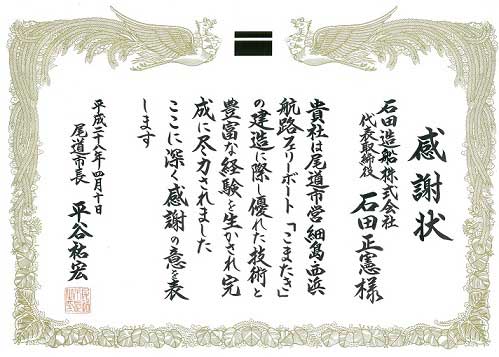 感謝状
石田造船株式会社
代表取締役 石田正憲様
貴社は尾道市営細島・西浜
航路フェリーボート「こまたき」
の建造に際し優れた技術と
豊富な経験を生かされ完
成に尽力されました
ここに深く感謝の意を表
します
平成二十八年四月十日
尾道市長 平谷祐宏